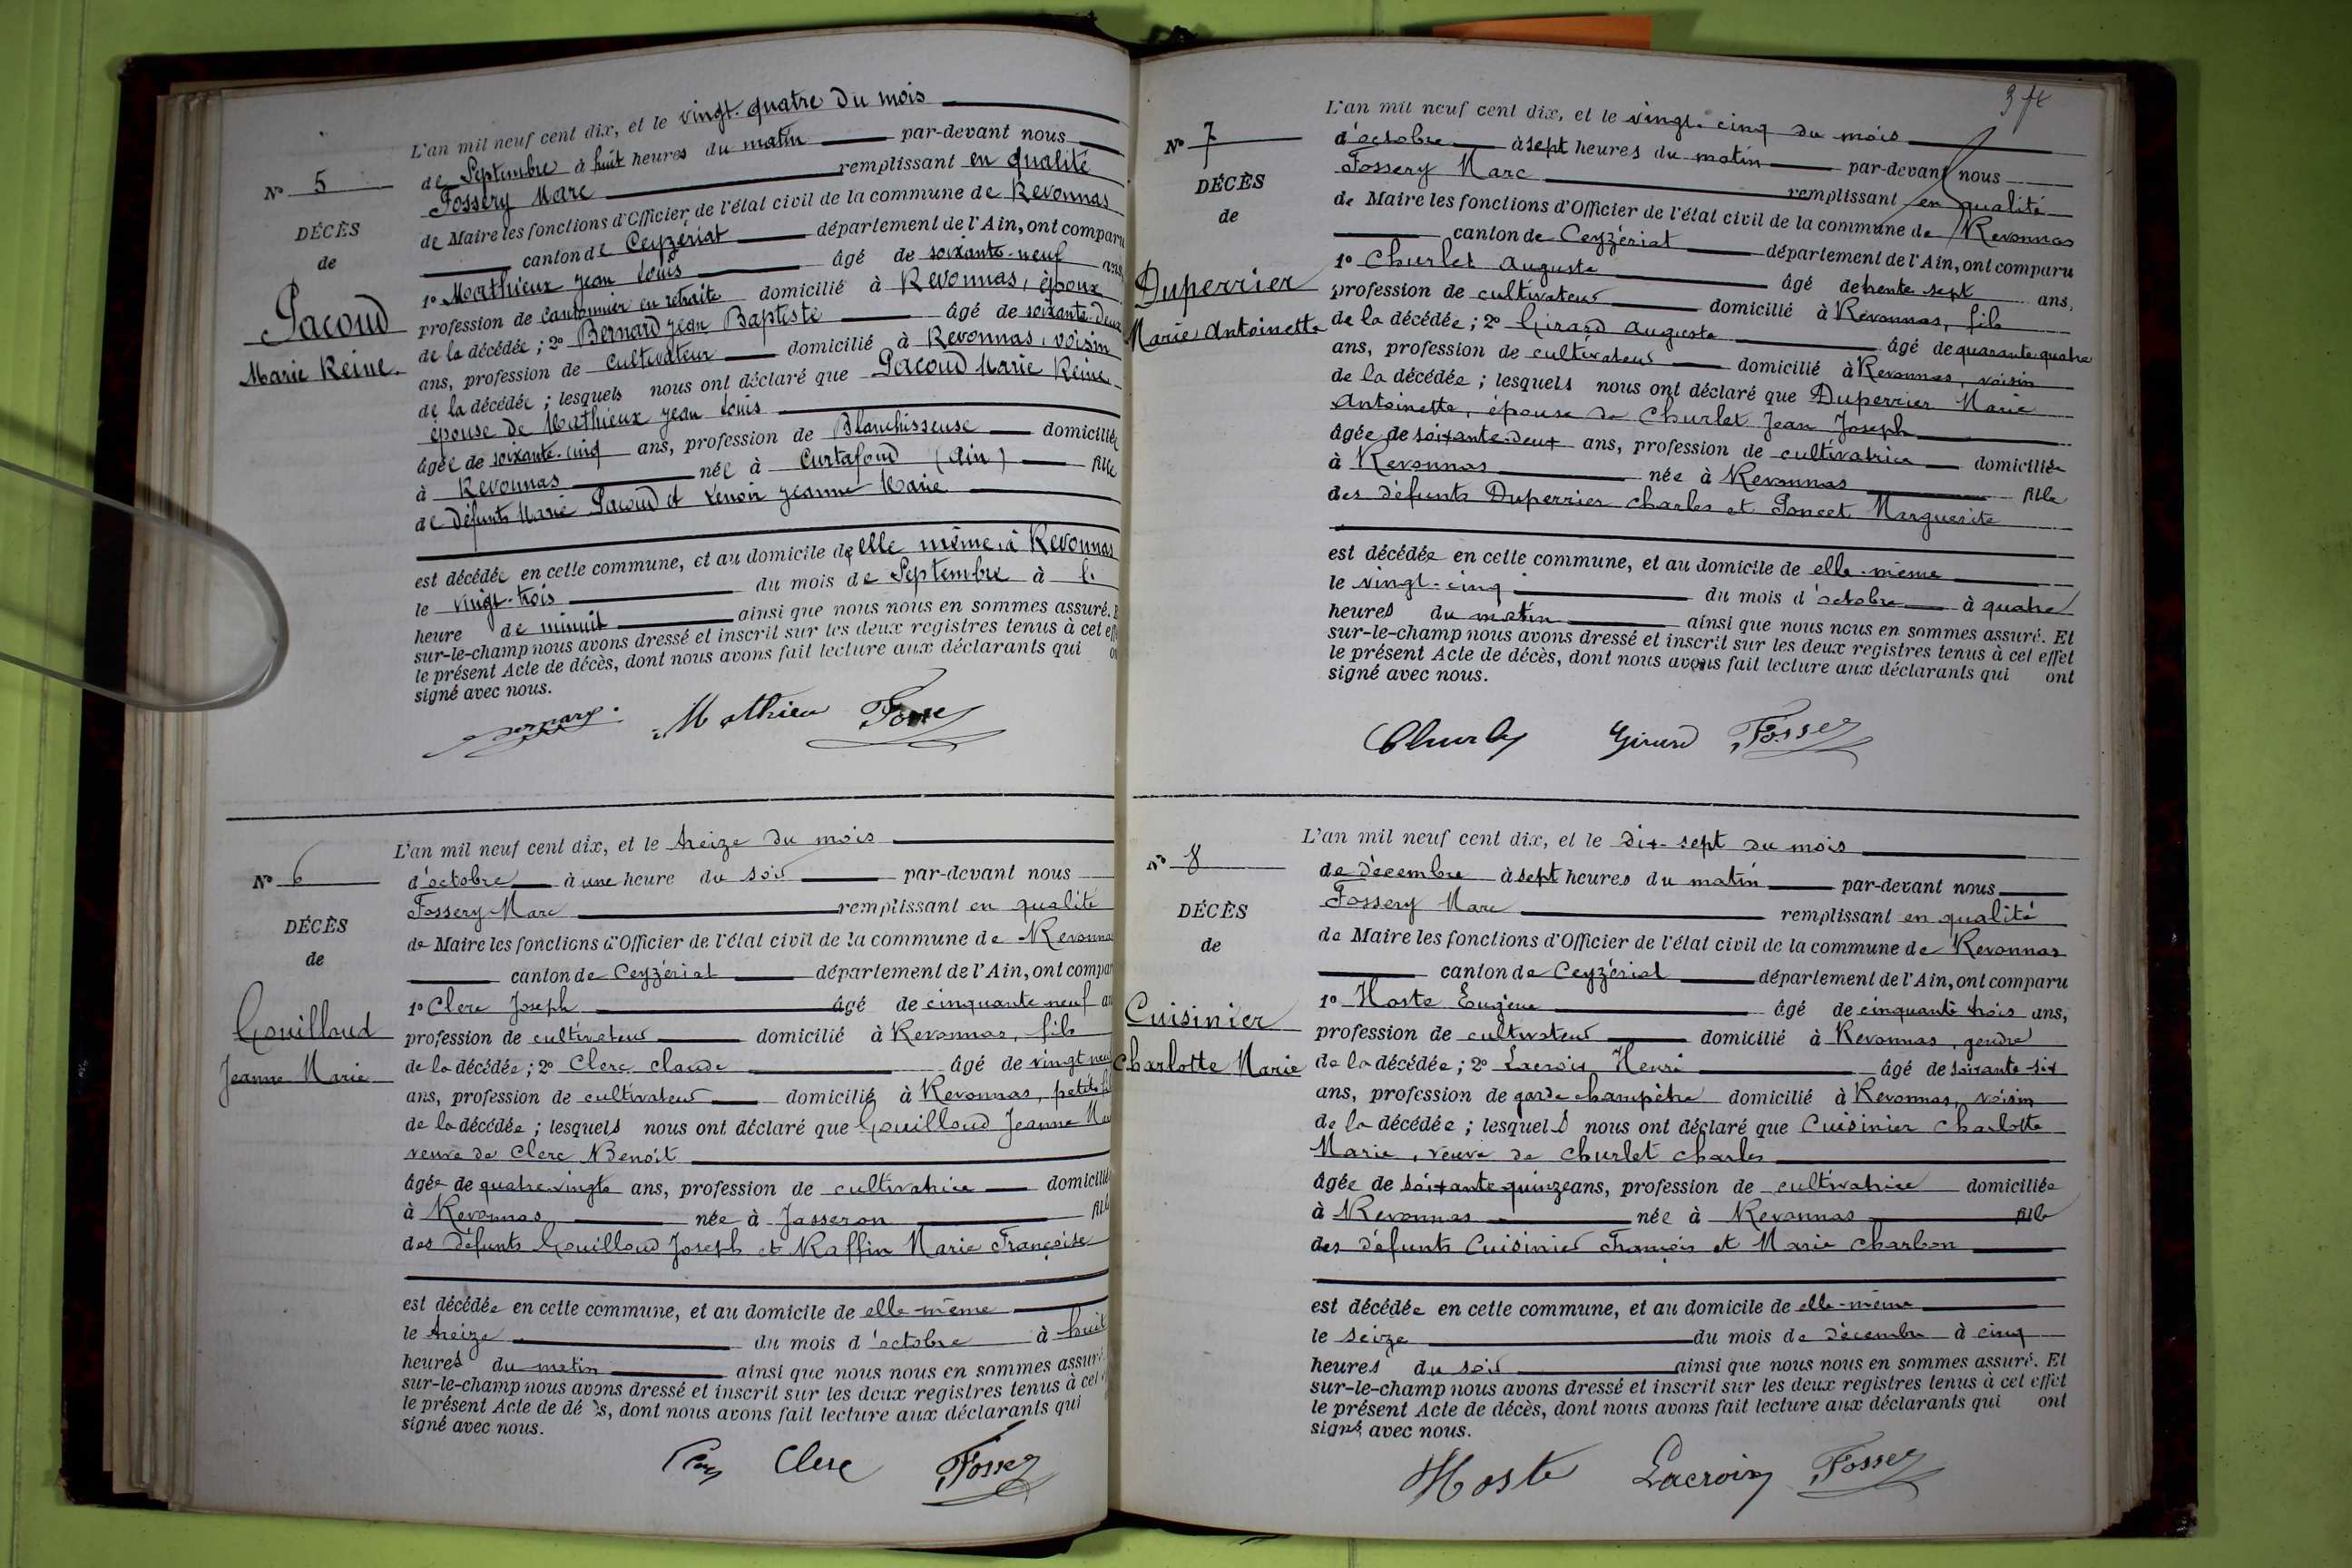 L'an mil neuf cent dix, et le vingt-quatre du mois
N° 5
de Septembre à huit heures du matin par-devant nous
Fossery Marc remplissant en qualité
DÉCÈS
de Maire les fonctions d'Officier de l'état civil de la commune de Revonnas
de
canton de Ceyzériat département de l'Ain, ont comparu
1° Mathieux Jean Louis âgé de soixante-neuf ans,
Pacoud
profession de Cantonnier en retraite domicilié à Revonnas, époux
de la décédée ; 2° Bernard Jean Baptiste âgé de soixante-deux
Marie Reine.
ans, profession de Cultivateur domicilié à Revonnas, voisin
de la décédée ; lesquels nous ont déclaré que Pacoud Marie Reine
épouse de Mathieux Jean Louis
âgée de soixante-cinq ans, profession de Blanchisseuse domiciliée
à Revonnas née à Curtafond (Ain) fille
de défunts Marie Pacoud et Lenoir Jeanne Marie
est décédée en cette commune, et au domicile de elle même, à Revonnas
le vingt-trois du mois de Septembre à
heure de minuit ainsi que nous nous en sommes assuré. E
sur-le-champ nous avons dressé et inscrit sur les deux registres tenus à cet effe
le présent Acte de décès, dont nous avons fait lecture aux déclarants qui o
signé avec nous.
Bernard. Mathieu Fossery
L'an mil neuf cent dix, et le treize du mois
N° 6
d'octobre à une heure du soir par-devant nous
Fossery Marc remplissant en qualité
DÉCÈS
de Maire les fonctions d'Officier de l'état civil de la commune de Revonna
de
canton de Ceyzériat département de l'Ain, ont compar
1° Clerc Joseph âgé de cinquante neuf an
Gouilloud
profession de cultivateur domicilié à Revonnas, fils
de la décédée ; 2° Clerc Claude âgé de vingt neuf
Jeanne Marie
ans, profession de cultivateur domicilié à Revonnas, petit fi
de la décédée ; lesquels nous ont déclaré que Gouilloud Jeanne Ma
veuve de Clerc Benoit
âgée de quatre vingts ans, profession de cultivatrice domiciliée
à Revonnas née à Jasseron fille
des défunts Gouilloud Joseph et Raffin Marie Françoise
est décédée en cette commune, et au domicile de elle-même
le treize du mois d'octobre à huit
heures du matin ainsi que nous nous en sommes assuré.
sur-le-champ nous avons dressé et inscrit sur les deux registres tenus à cet
le présent Acte de dé s, dont nous avons fait lecture aux déclarants qui
signé avec nous.
Clerc Fossery
37
L'an mil neuf cent dix, et le vingt-cinq du mois
N° 7
d'octobre à sept heures du matin par-devant nous
Fossery Marc remplissant en qualité
DÉCÈS
de Maire les fonctions d'Officier de l'état civil de la commune de Revonnas
de
canton de Ceyzériat département de l'Ain, ont comparu
1° Churlet Auguste âgé de trente sept ans,
Duperrier
profession de cultivateur domicilié à Revonnas, fils
Marie Antoinette
de la décédée ; 2° Girard Auguste âgé de quarante quatre
ans, profession de cultivateur domicilié à Revonnas, voisin
de la décédée ; lesquels nous ont déclaré que Duperrier Marie
Antoinette, épouse de Churlet Jean Joseph
âgée de soixante-deux ans, profession de cultivatrice domiciliée
à Revonnas née à Revonnas fille
des défunts Duperrier Charles et Poncet Marguerite
est décédée en cette commune, et au domicile de elle-même
le vingt-cinq du mois d'octobre à quatre
heures du matin ainsi que nous nous en sommes assuré. Et
sur-le-champ nous avons dressé et inscrit sur les deux registres tenus à cet effet
le présent Acte de décès, dont nous avons fait lecture aux déclarants qui ont
signé avec nous.
Churlet Girard Fossery
L'an mil neuf cent dix, et le dix-sept du mois
N° 8
de décembre à sept heures du matin par-devant nous
Fossery Marc remplissant en qualité
DÉCÈS
de Maire les fonctions d'Officier de l'état civil de la commune de Revonnas
de
canton de Ceyzériat département de l'Ain, ont comparu
1° Hoste Eugène âgé de cinquante trois ans,
Cuisinier
profession de cultivateur domicilié à Revonnas, gendre
Charlotte Marie
de la décédée ; 2° Lacroix Henri âgé de soixante-six
ans, profession de garde champêtre domicilié à Revonnas, voisin
de la décédée ; lesquels nous ont déclaré que Cuisinier Charlotte
Marie, veuve de Churlet Charles
âgée de soixante quinze ans, profession de cultivatrice domiciliée
à Revonnas née à Revonnas fille
des défunts Cuisinier François et Marie Charbon
est décédée en cette commune, et au domicile de elle-même
le seize du mois de décembre à cinq
heures du soir ainsi que nous nous en sommes assuré. Et
sur-le-champ nous avons dressé et inscrit sur les deux registres tenus à cet effet
le présent Acte de décès, dont nous avons fait lecture aux déclarants qui ont
signé avec nous.
Hoste Lacroix Fossery